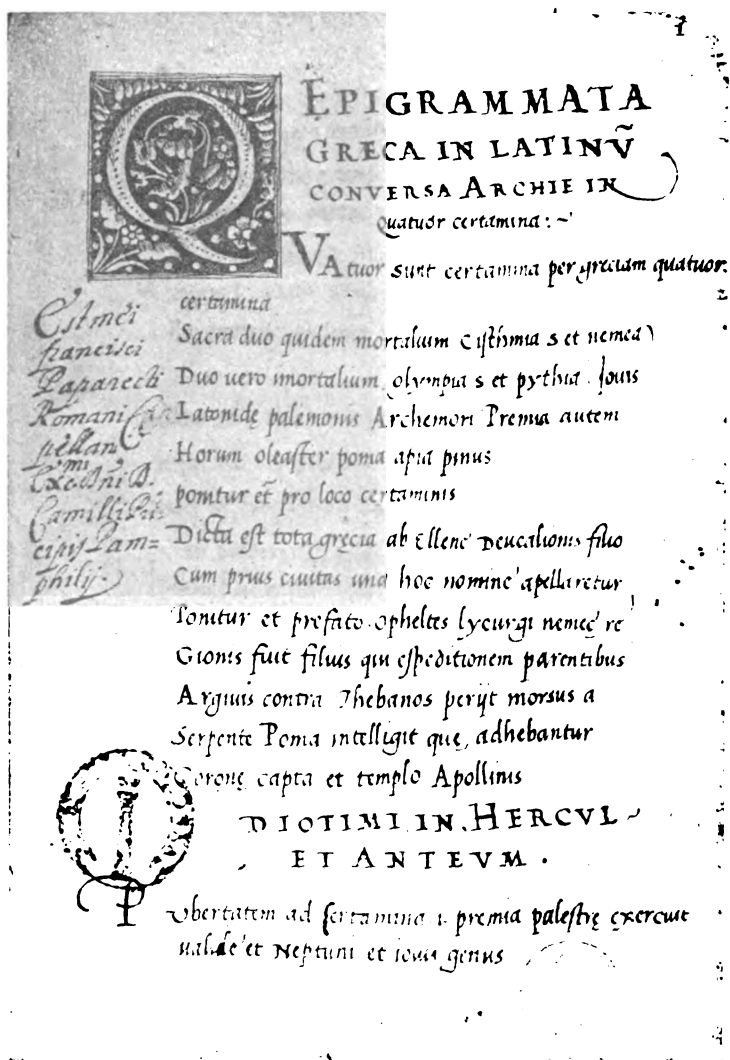 1
EPIGRAMMATA
GRECA IN LATINŨ
CONVERSA ARCHIE IN
Quatuor certamina: ~
QVAtuor sunt certamina per greciam quatuor
certamina
Sacra duo quidem mortalium Cisthmia s et nemea)
Duo uero imortalium, olympia s et pythia. Iouis
Latonidę palemonis Archemori Premia autem
Horum oleaster poma apia pinus
ponitur et pro loco certaminis
Dicta est tota gręcia ab Ellene Deucalionis filio
Cum prius ciuitas una hoc nomine apellaretur
Ponitur et prefato opheltes lycurgi nemeę re
Gionis fuit filius qui espeditionem parentibus
Argiuis contra Thebanos perijt morsus a
Serpente Poma intelligit que, adhebantur
Coronę capta et templo Apollinis
DIOTIMI IN. HERCVL~
ET ANTEVM.
Vbertatem ad certamina premia palestrę exercuit
ualide et Neptuni et iouis genus
Est mei
francisci
Paparecti
Romani
pellani
Camilli
cipij Pam=
philij.